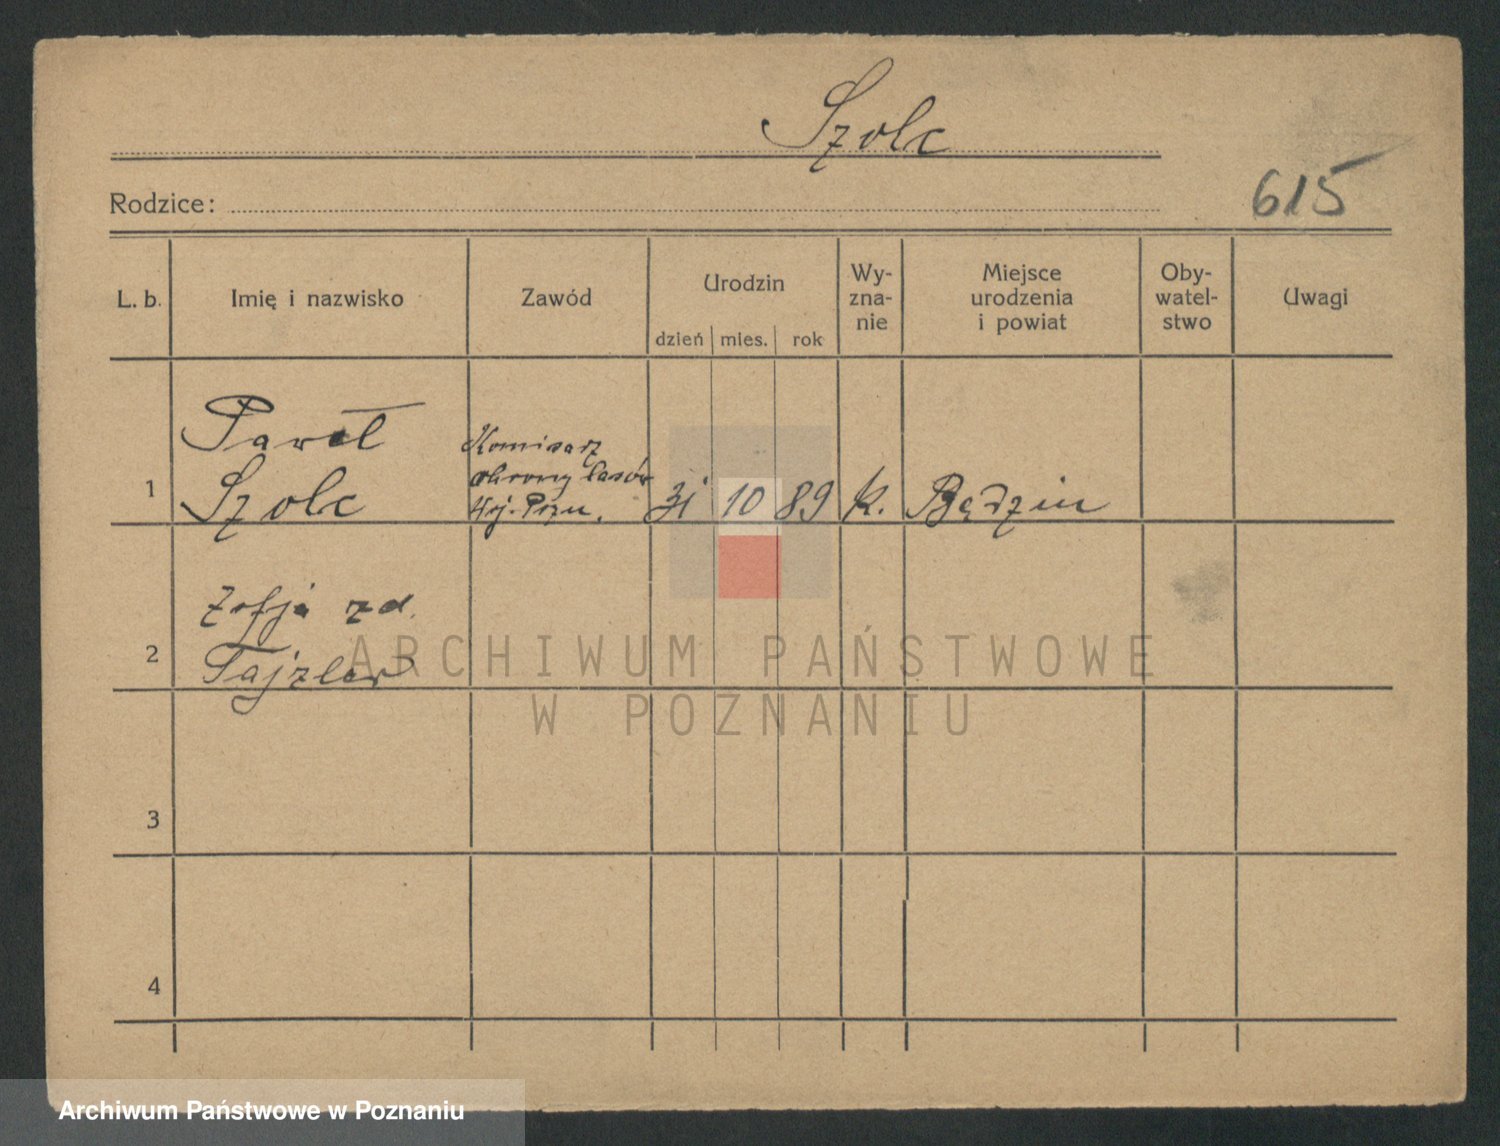 Szolc
Rodzice:
615
L. b.
Imię i nazwisko
Zawód
Urodzin
dzień
mies.
rok
Wy-
zna-
nie
Miejsce
urodzenia
i powiat
Oby-
watel-
stwo
Uwagi
1
Paweł
Szolc
Komisarz
ochrony lasów
Woj. Pozn.
31
10
89
k.
Będzin
2
Zofja zd.
Tajzler
3
4
ARCHIWUM PAŃSTWOWE
W POZNANIU
Archiwum Państwowe w Poznaniu